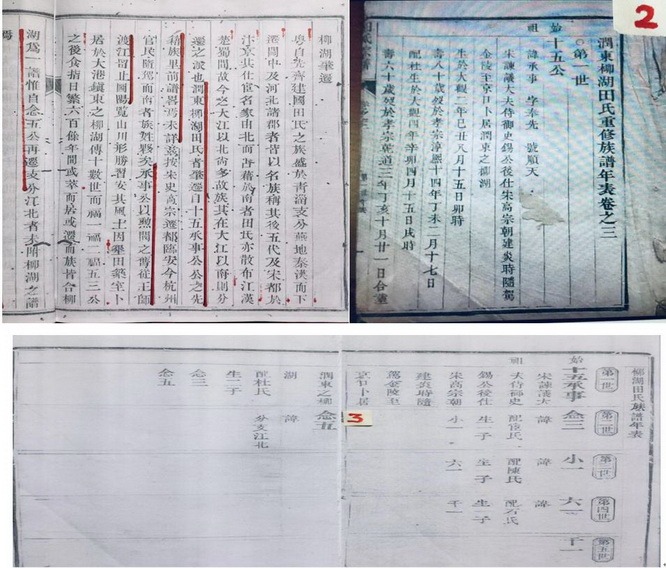 柳湖肇遷
粵自先齊建國田氏之族盛於青淄支分燕地秦漢而下
遷關中及河北諸郡者皆以名族稱其後五代及宋都於
汴京其仕宦名家由北而占藉於南者田氏亦散布江漢
楚蜀間故今之大江以北尚多故族其在大江以南則分
遷之也潤東柳湖田氏者肇遷自十五承事公公之先
族里前譜畧未詳按宋史高宗遷都臨安今杭州
官民隨駕而南者族姓夥矣承事公以勳閥之胄從王師
渡江留止覽山川形勝習安其風土因田築室卜
居於大港鎮東之柳湖傳十數世而福一福二福五三公
之後食指日繁六百餘年間或萃而居或遷而族皆合柳
湖為一譜惟自念五公再遷支分江北者附柳湖之譜
焉
2
潤東柳湖田氏重修族譜年表卷之三
第一世
始祖
十五公
諱承事 字奉先 號順天
宋諫議大夫侍御史錫公後仕宋高宗朝建炎時隨駕
金陵至京口卜居潤東之柳湖
生於大觀三年己丑八月十五日卯時
壽八十歲歿於孝宗淳熙十四年丁未二月十七日
配杜氏生於大觀四年辛卯四月十五日戌時
壽六十歲歿於孝宗乾道三年丁亥十月廿一日合葬
柳湖田氏族譜年表
第一世
第二世
第三世
第四世
第五世
始祖
十五承事
宋諫議大
夫侍御史
錫公後仕
宋高宗朝
建炎時隨
駕金陵至
京口卜居
念三
諱
配宦氏
生一子
小一
小一
諱
配陳氏
生一子
六一
六一
諱
配石氏
生一子
千一
千一
3
潤東之柳
湖
配杜氏
生二子
念三
念五
念五
諱
分支江北